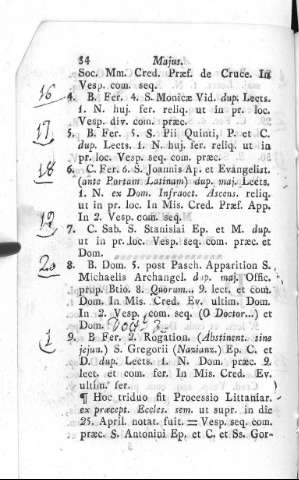 34 Majus.
Soc. Mm. Cred. Præf. de Cruce. In
Vesp. com. seq.
16 4. B. Fer. 4. S. Monicæ Vid. dup. Lects.
1. N. huj. fer. reliq. ut in pr. loc.
Vesp. div. com. præc.
17 5. B. Fer. 5. S. Pii Quinti, P. et C.
dup. Lects. 1. N. huj. fer. reliq. ut in
pr. loc. Vesp. seq. com. præc.
18 6. C. Fer. 6. S. Joannis Ap. et Evangelist.
(ante Portam Latinam) dup. maj. Lects.
1. N. ex Dom. Infraoct. Ascens. reliq.
ut in pr. loc. In Mis. Cred. Præf. App.
In 2. Vesp. com. seq.
19 7. C. Sab. S. Stanislai Ep. et M. dup.
ut in pr. loc. Vesp. seq. com. præc. et
Dom.
20 8. B. Dom. 5. post Pasch. Apparition S.
Michaelis Archangel. dup. maj. Offic.
prop. Btio. 8. Quoram... 9. lect. et com.
Dom. In Mis. Cred. Ev. ultim. Dom.
In 2. Vesp. com. seq. (O Doctor...) et
Dom.
1 9. B Fer. 2. Rogation. (Abstinent. sine
jejun.) S. Gregorii (Nazianz.) Ep. C. et
D. dup. Lects. 1. N. Dom. præc. 9.
lect. et com. fer. In Mis. Cred. Ev.
ultim. fer.
¶ Hoc triduo fit Processio Littaniar.
ex præcept. Eccles. sem. ut supr. in die
25. April. notat. fuit. = Vesp. seq. com.
præc. S. Antonini Ep. et C. et Ss. Gor-